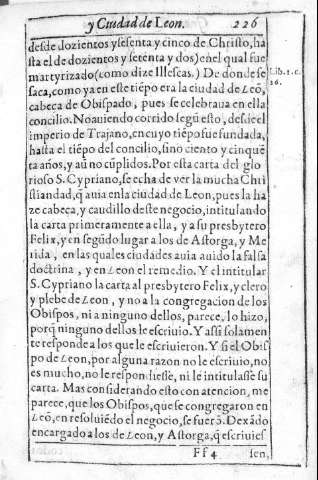 y Ciudad de Leon. 226
desde dozientos y sesenta y cinco de Christo, ha
sta el de dozientos y setenta y dos) en el qual fue
martyrizado (como dize Illescas.) De donde se
saca, como ya en este tiẽpo era la ciudad de Leõ,
cabeca de Obispado, pues se celebraua en ella
concilio. No auiendo corrido segũ esto, desde el
imperio de Trajano, en cuyo tiẽpo fue fundada,
hasta el tiẽpo del concilio, sino ciento y cinquẽ
ta años, y aũ no cũplidos. Por esta carta del glo
rioso S. Cypriano, se echa de ver la mucha Chri
stiandad, q̃ auia en la ciudad de Leon, pues la ha
ze cabeça, y caudillo deste negocio, intitulando
la carta primeramente a ella, y a su presbytero
Felix, y en segũdo lugar a los de Astorga, y Me
rida, en las quales ciudades auia auido la falsa
doctrina, y en Leon el remedio. Y el intitular
S. Cypriano la carta al presbytero Felix, y clero
y plebe de Leon, y no a la congregacion de los
Obispos, ni a ninguno dellos, parece, lo hizo,
porq̃ ninguno dellos le escriuio. Y assi solamen
te responde a los que le escriuieron. Y si el Obis
po de Leon, por alguna razon no le escriuio, no
es mucho, no le respondiesse, ni le intitulasse su
carta. Mas considerando esto con atencion, me
parece, que los Obispos, que se congregaron en
Leõ, en resoluiẽdo el negocio, se fuerõ. Dexãdo
encargado a los de Leon, y Astorga, q̃ escriuies
Ff 4 sen,
Lib. 1. c.
26.